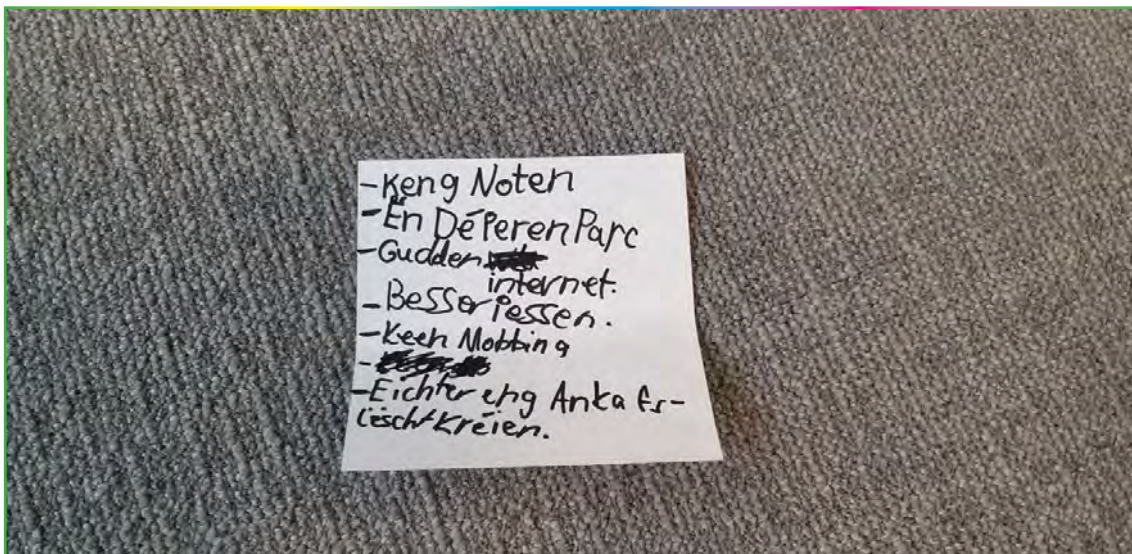 - Keng Noten
- En DéPeren Parc
- Gudden
internet.
- Besser iessen.
- Keen Mobbing
-
- Eichter eng Ankafs-
lëscht Kréien.